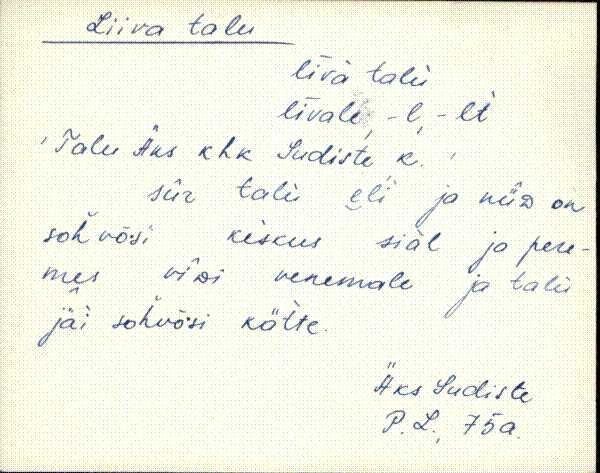 Liiva talu
līvà talù
līvale, -l, -lt
'Talu Äks khk Sudiste k.'
sūr talù eĺi ja nüìD on
sohvōsi keskus siäl ja pere-
mes vīDi venemale ja talù
jäi sohvōsi kätte.
Äks Sudiste
P. L., 75a.